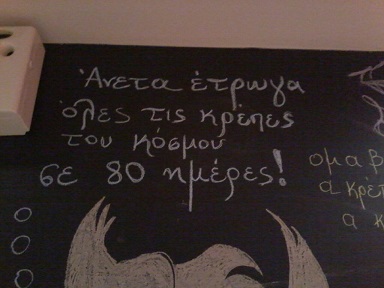 Άνετα έτρωγα
όλες τις κρέπες
του κόσμου
σε 80 ημέρες!